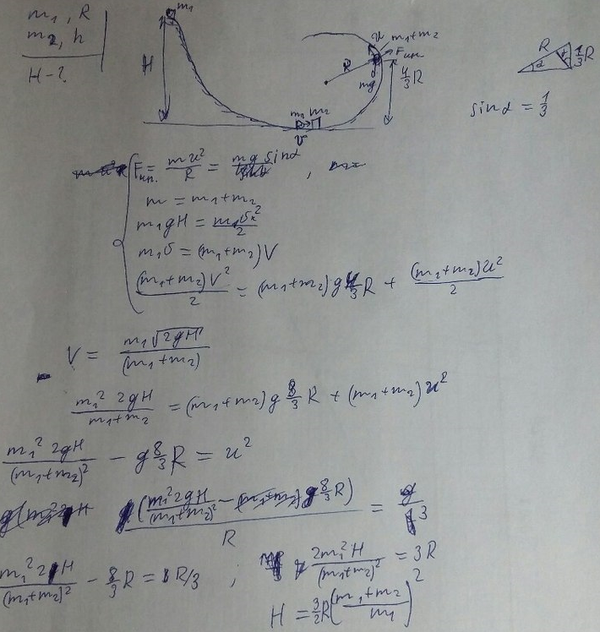 m₁, R
m₂, h
H-?
m₁
H
R
u
m₁+m₂
mg
4/3 R
m₁ m₂
υ
R
α
1/3 R
sinα = 1/3
= mu²/R = mg sinα ,
m = m₁+m₂
m₁gH = m₁υ²/2
m₁υ = (m₁+m₂)V
(m₁+m₂)V²/2 = (m₁+m₂)g 4/3 R + (m₁+m₂)u²/2
V = m₁√2gH/(m₁+m₂)
m₁² 2gH/(m₁+m₂) = (m₁+m₂)g 8/3 R + (m₁+m₂)u²
m₁² 2gH/(m₁+m₂)² - g 8/3 R = u²
(m₁² 2gH/(m₁+m₂)² - g 8/3 R)/R = g/3
m₁² 2H/(m₁+m₂)² - 8/3 R = R/3 ; 2m₁²H/(m₁+m₂)² = 3R
H = 3/2 R((m₁+m₂)/m₁)²